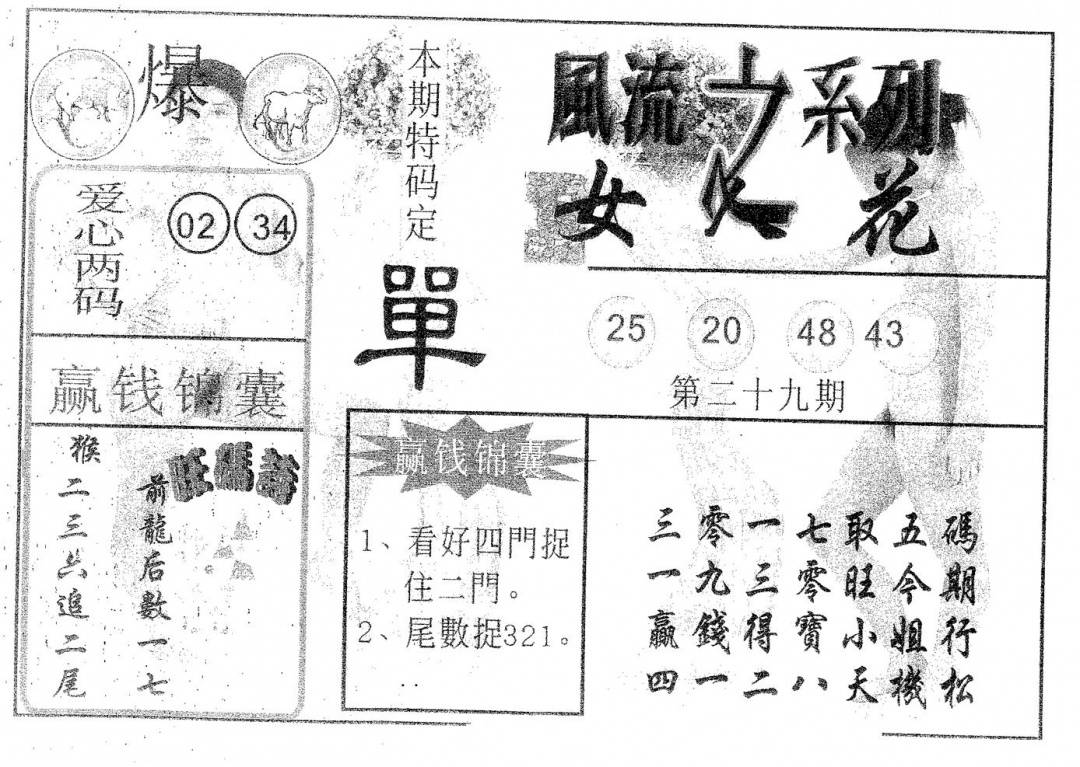 爆
爱心两码
02 34
赢钱锦囊
旺碼詩
猴二三六追二尾
前龍后數一七
本期特码定
單
赢钱锦囊
1、看好四門捉
住二門。
2、尾數捉321。
..
風流之系列
女人花
25 20 48 43
第二十九期
三零一七取五碼
一九三零旺今期
贏錢得寶小姐行
四一二八天機松